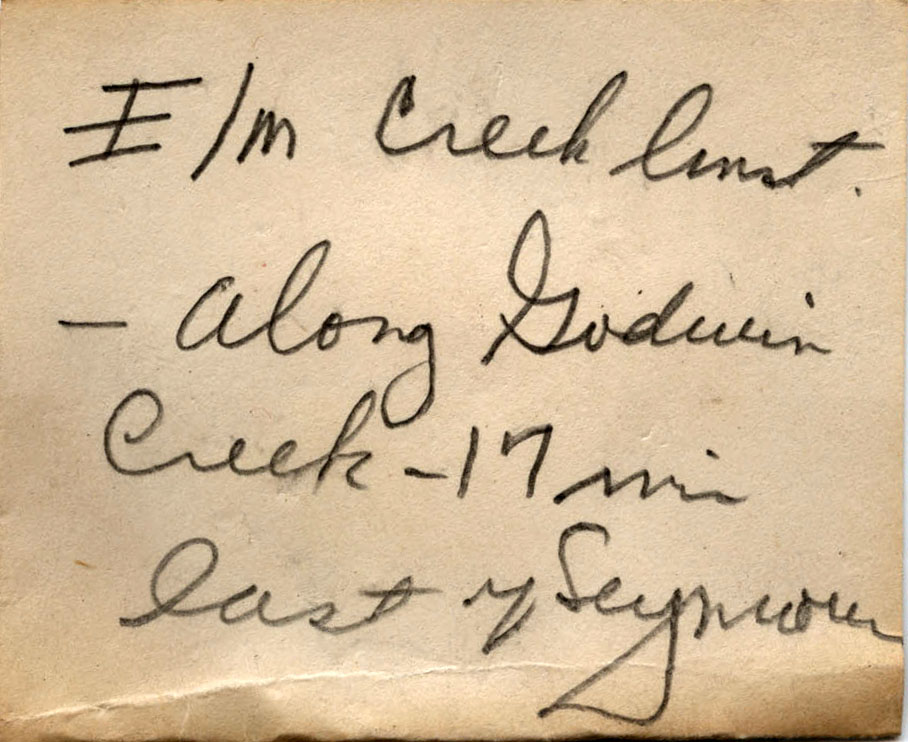 Elm Creek limst.
- along Godwin
Creek - 17 mi
East of Seymour